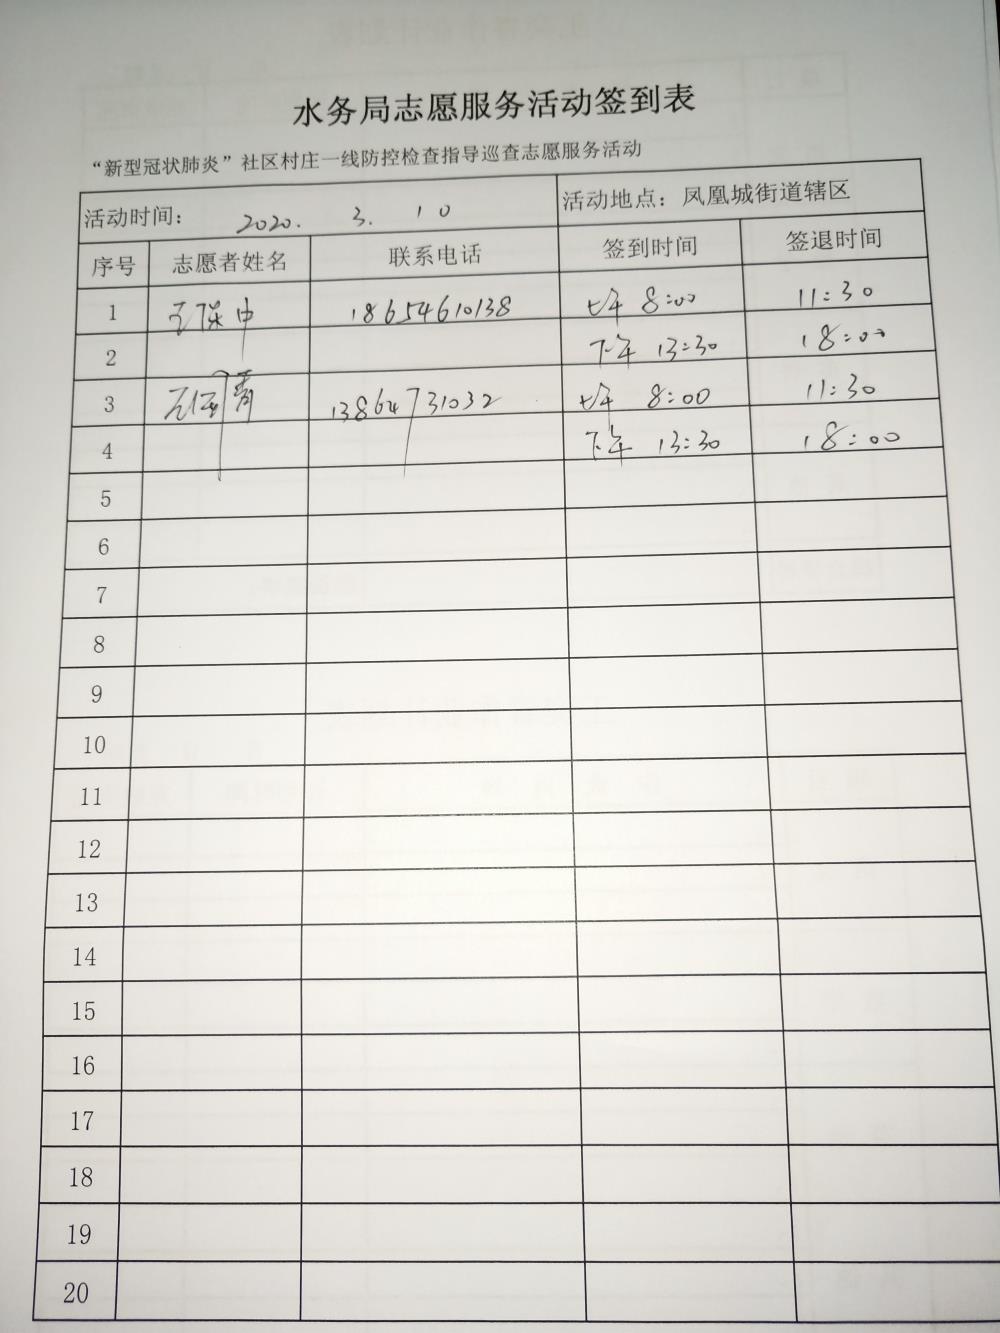 水务局志愿服务活动签到表
“新型冠状肺炎”社区村庄一线防控检查指导巡查志愿服务活动
活动时间： 2020. 3. 10 活动地点：凤凰城街道辖区
序号 志愿者姓名 联系电话 签到时间 签退时间
1 王保中 18654610138 上午 8:00 11:30
2 下午 13:30 18:00
3 13864731032 上午 8:00 11:30
4 下午 13:30 18:00
5
6
7
8
9
10
11
12
13
14
15
16
17
18
19
20